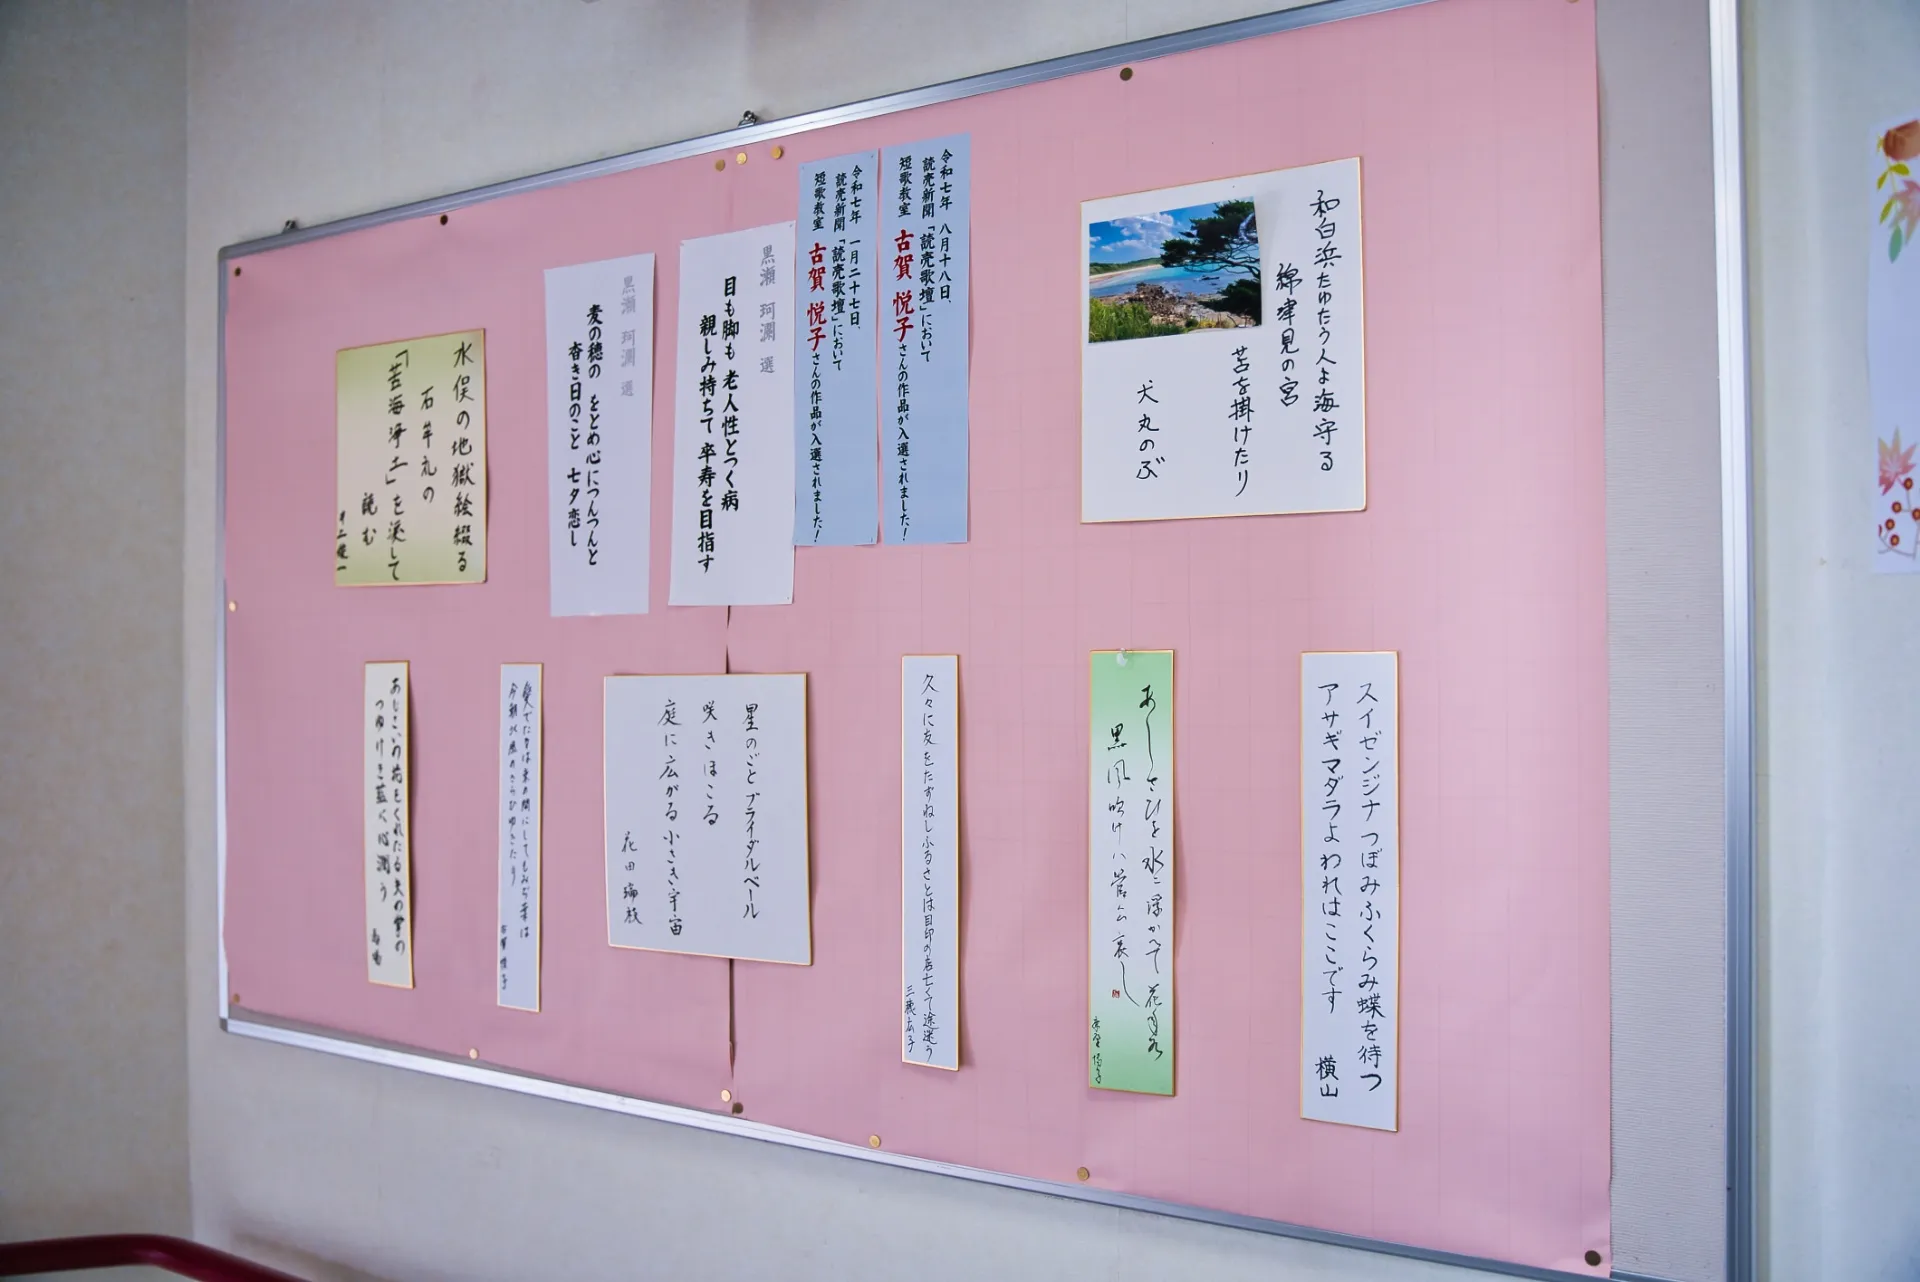 和白浜たゆたう人よ海守る
綿津見の宮
苔を掛けたり
犬丸のぶ
令和七年 八月十八日、
読売新聞「読売歌壇」において
短歌教室 古賀 悦子さんの作品が入選されました!
令和七年 一月二十七日、
読売新聞「読売歌壇」において
短歌教室 古賀 悦子さんの作品が入選されました!
黒瀬 珂瀾 選
目も脚も 老人性とつく病
親しみ持ちて 卒寿を目指す
黒瀬 珂瀾 選
麦の穂の をとめ心につんつんと
杳き日のこと 七夕恋し
水俣の地獄絵綴る
石牟礼の
「苦海浄土」を涙して
読む
スイゼンジナ つぼみふくらみ蝶を待つ
アサギマダラよ われはここです
横山
あしさひを水に浮かへて 花手水
黒風吹けハ菅公哀し
久々に友をたずねしふるさとは目印の店亡くて途迷う
三穂広子
星のごとブライダルベール
咲きほこる
庭に広がる小さき宇宙
花田
東の間にしてもみぢ葉は
古賀悦子
あじさいの花をくれたる夫の掌の
つゆけき藍に心潤う